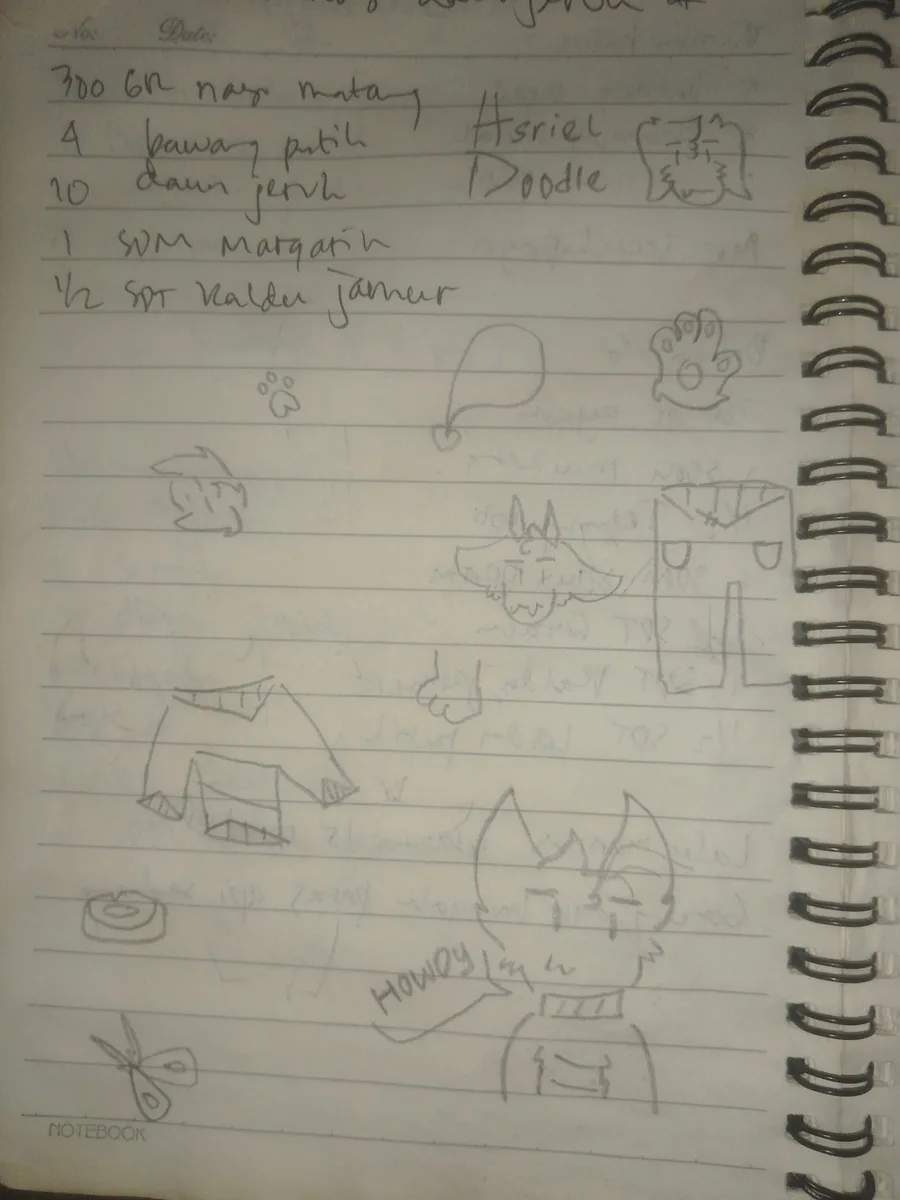 No: Date:
300 GR nasi matang
4 bawang putih
10 daun jeruk
1 SDM Margarin
1/2 SPT Kaldu jamur
Asriel
Doodle
HOWDY
NOTEBOOK